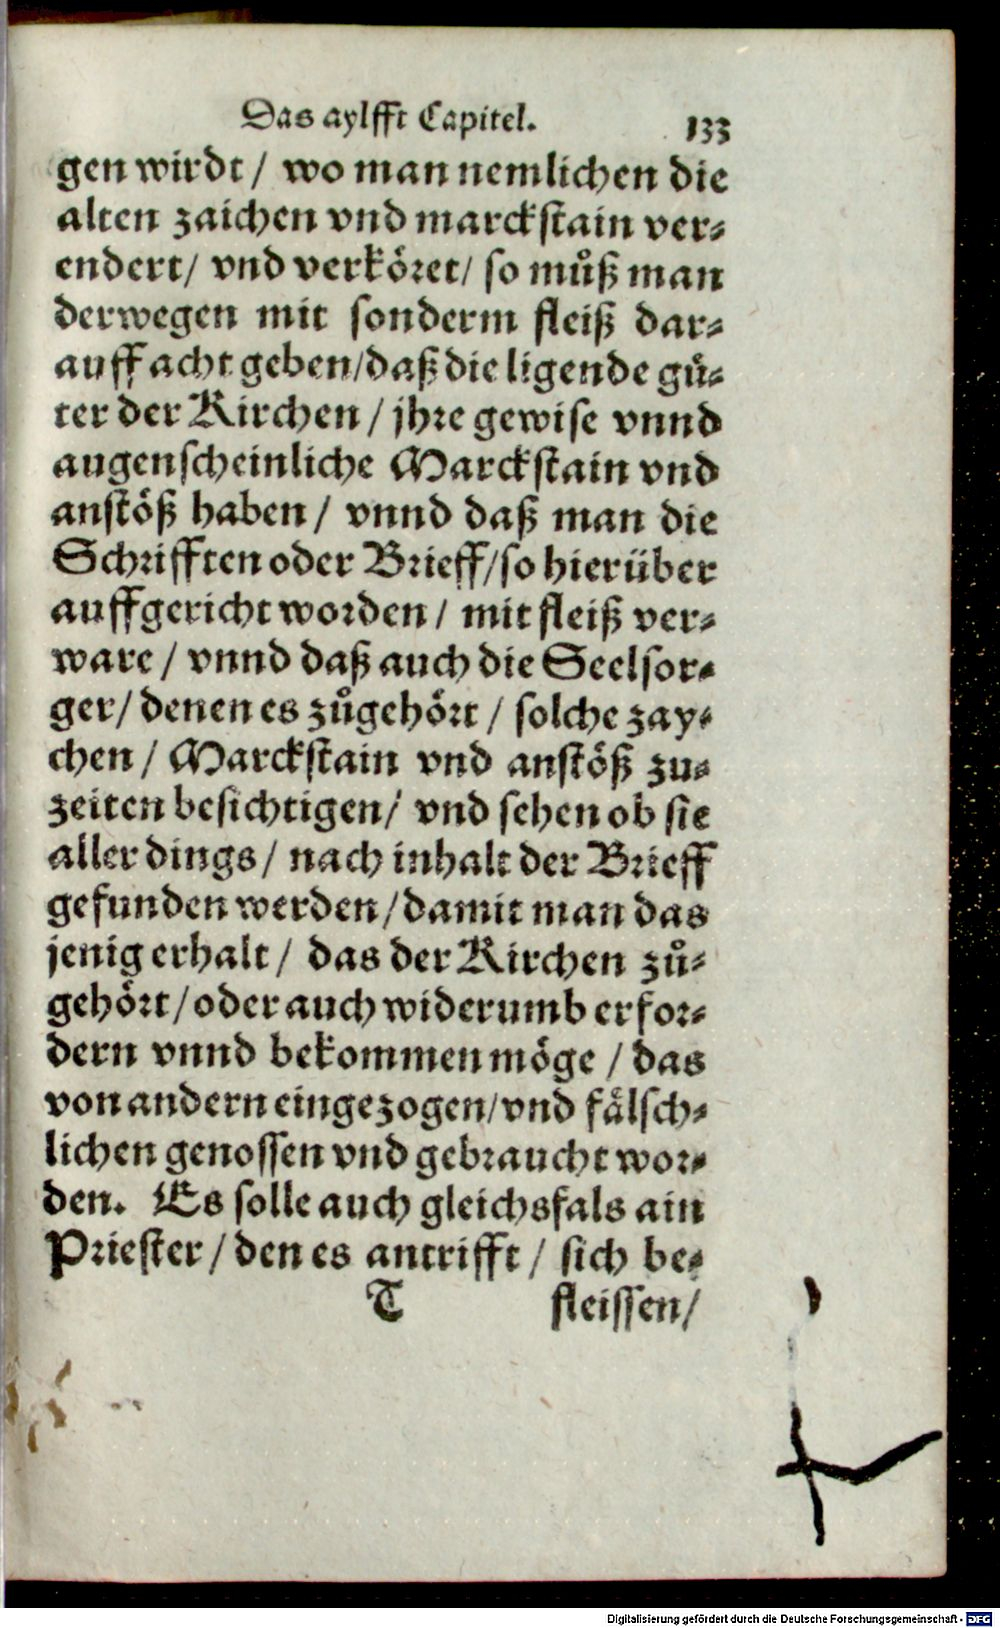 Das aylfft Capitel. 133
gen wirdt / wo man nemlichen die
alten zaichen vnd marckstain ver⸗
endert / vnd verköret / so můß man
derwegen mit sonderm fleiß dar⸗
auff acht geben / daß die ligende gů⸗
ter der Kirchen / jhre gewise vnnd
augenscheinliche Marckstain vnd
anstöß haben / vnnd daß man die
Schrifften oder Brieff / so hierüber
auffgericht worden / mit fleiß ver⸗
ware / vnnd daß auch die Seelsor⸗
ger / denen es zůgehört / solche zay⸗
chen / Marckstain vnd anstöß zu⸗
zeiten besichtigen / vnd sehen ob sie
aller dings / nach inhalt der Brieff
gefunden werden / damit man das
jenig erhalt / das der Kirchen zů⸗
gehört / oder auch widerumb erfor⸗
dern vnnd bekommen möge / das
von andern eingezogen / vnd fälsch⸗
lichen genossen vnd gebraucht wor⸗
den. Es solle auch gleichsfals ain
Priester / den es antrifft / sich be⸗
T fleissen /
Digitalisierung gefördert durch die Deutsche Forschungsgemeinschaft - DFG